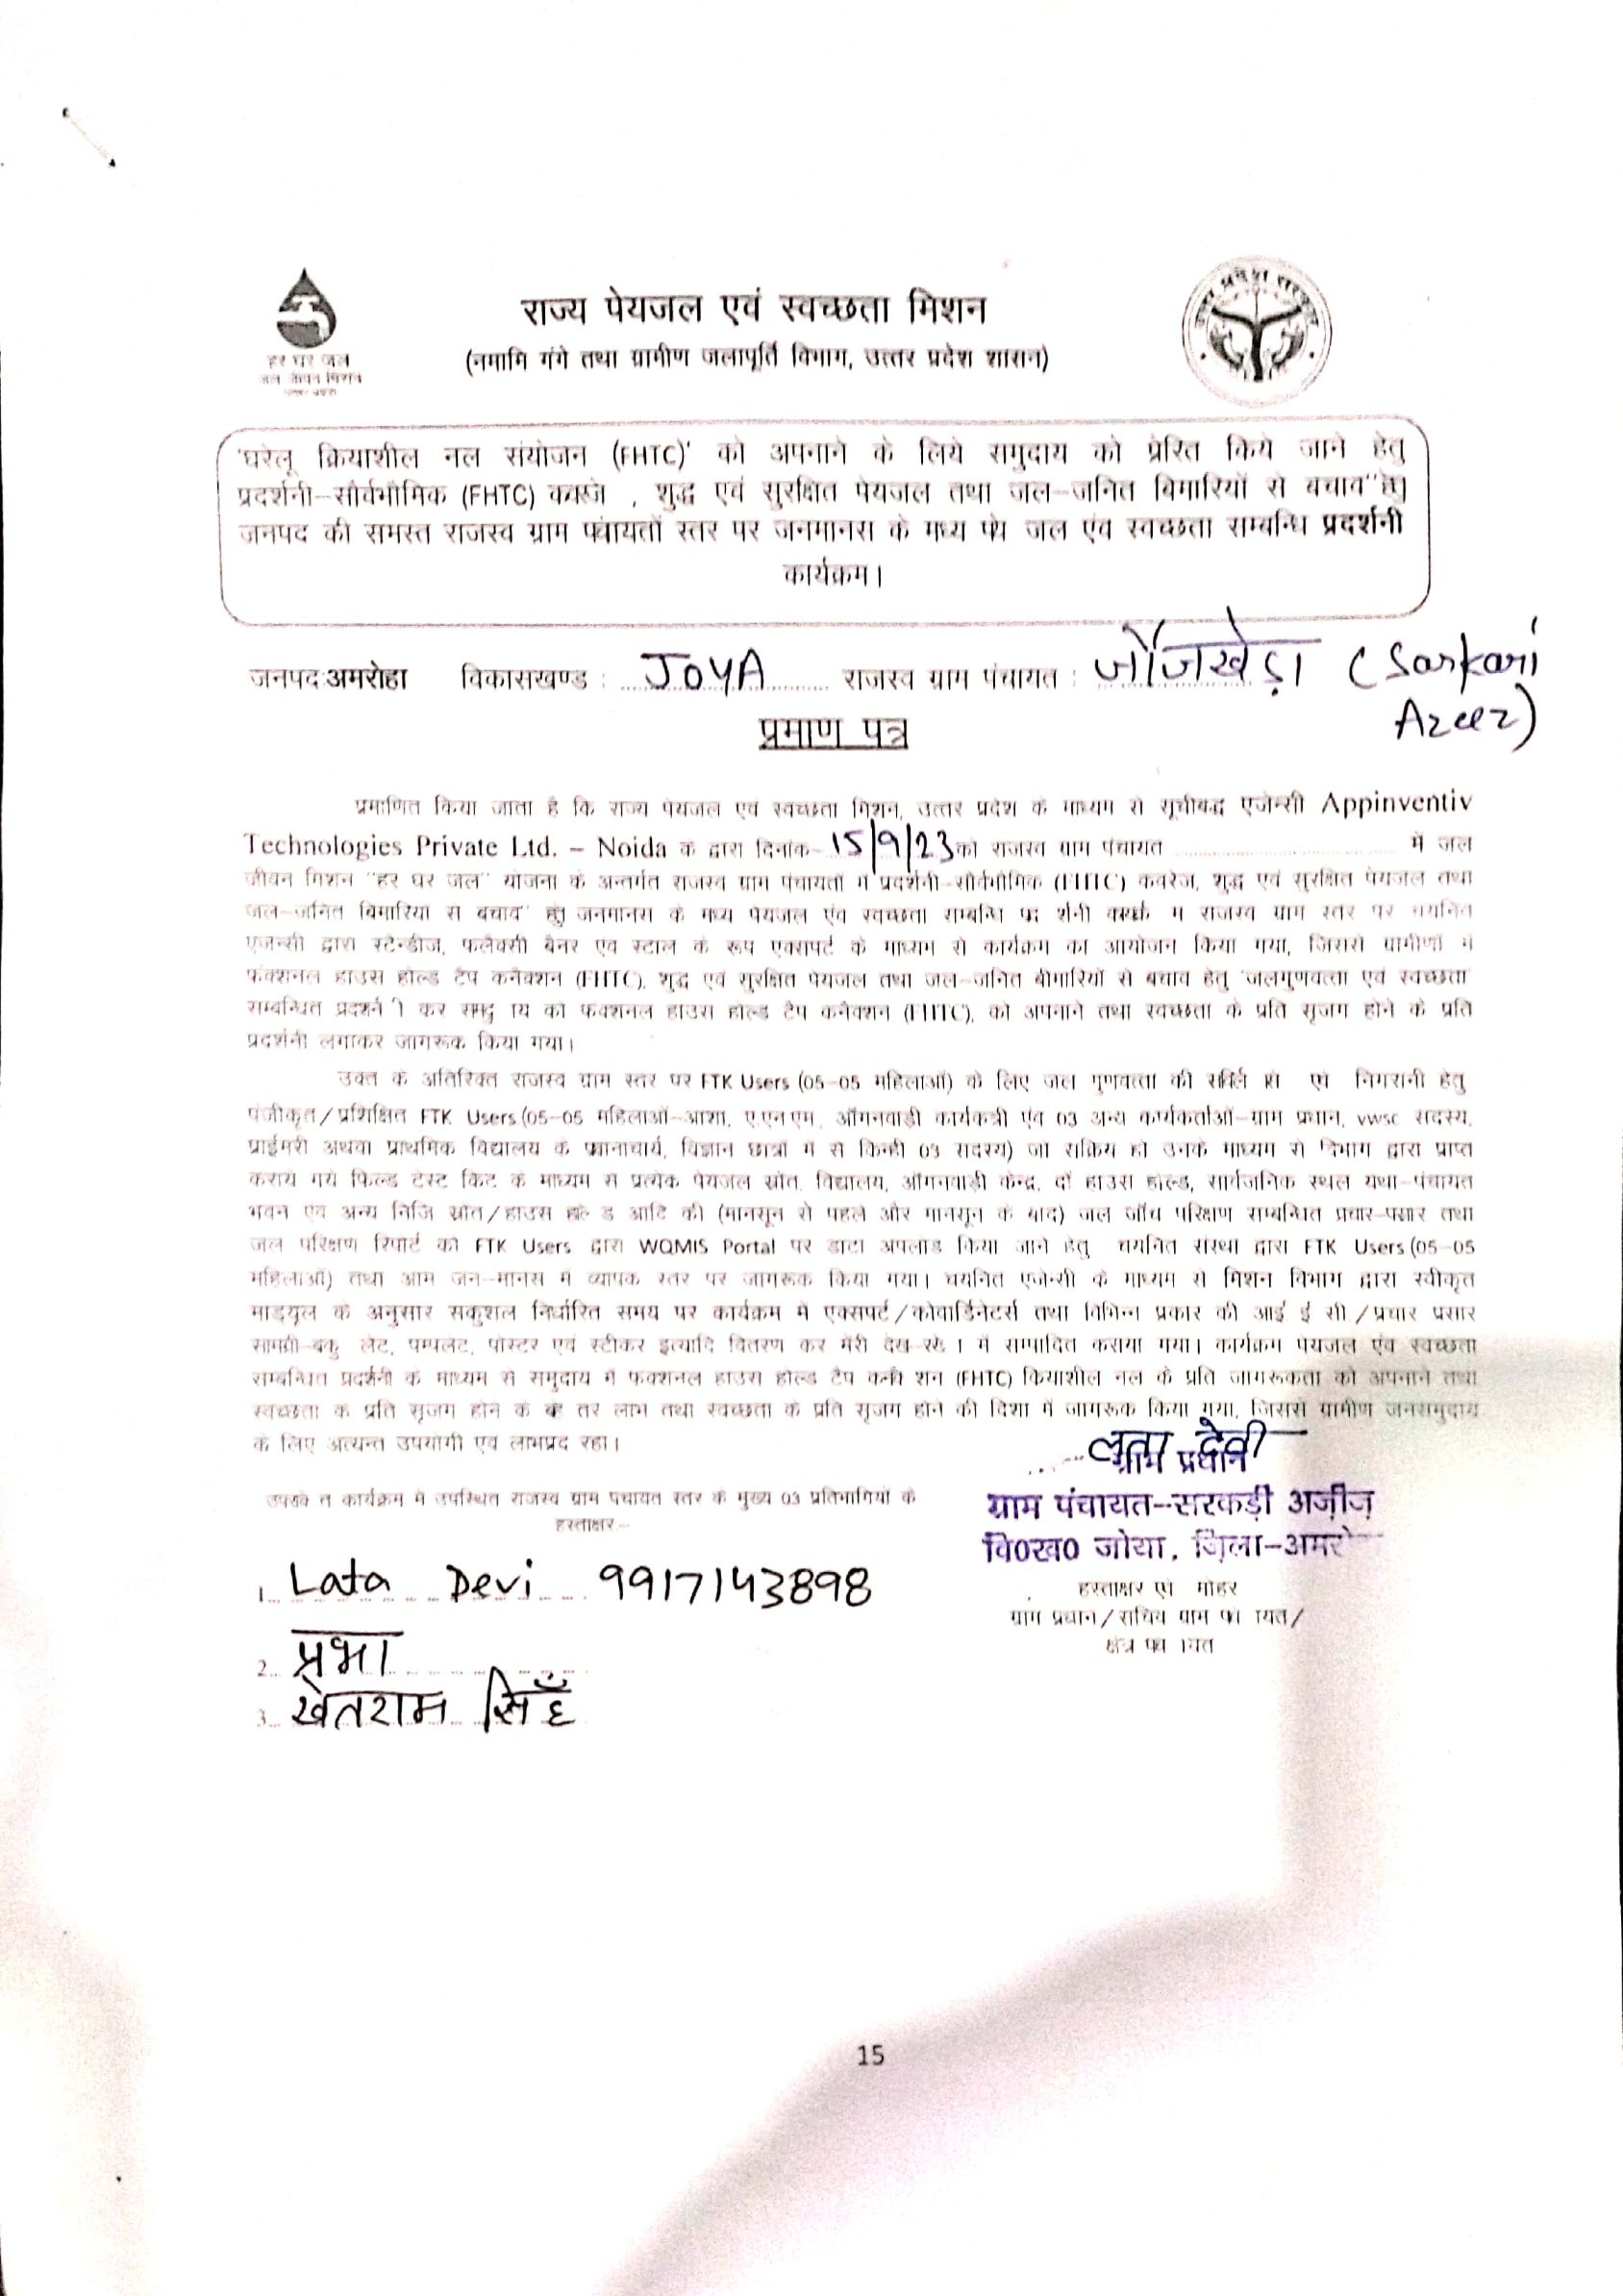 हर घर जल
जल जीवन मिशन
उत्तर प्रदेश सरकार
राज्य पेयजल एवं स्वच्छता मिशन
(नमामि गंगे तथा ग्रामीण जलापूर्ति विभाग, उत्तर प्रदेश शासन)
'घरेलू क्रियाशील नल संयोजन (FHTC)' को अपनाने के लिये समुदाय को प्रेरित किये जाने हेतु
प्रदर्शनी–सार्वभौमिक (FHTC) , शुद्ध एवं सुरक्षित पेयजल तथा जल–जनित बिमारियों से बचाव"हेतु
जनपद की समस्त राजस्व ग्राम पंचायतों स्तर पर जनमानस के मध्य पेय जल एंव स्वच्छता सम्बन्धि प्रदर्शनी
कार्यक्रम।
जनपद अमरोहा विकासखण्ड : JOYA राजस्व ग्राम पंचायत : (Sarkari
Azeez)
प्रमाण पत्र
प्रमाणित किया जाता है कि राज्य पेयजल एवं स्वच्छता मिशन, उत्तर प्रदेश के माध्यम से सूचीबद्ध एजेन्सी Appinventiv
Technologies Private Ltd. – Noida के द्वारा दिनांक– 15/9/23 को राजस्व ग्राम पंचायत में जल
जीवन मिशन "हर घर जल" योजना के अन्तर्गत राजस्व ग्राम पंचायतों में प्रदर्शनी–सार्वभौमिक (FHTC) कवरेज, शुद्ध एवं सुरक्षित पेयजल तथा
जल–जनित बिमारियों से बचाव" हेतु जनमानस के मध्य पेयजल एंव स्वच्छता सम्बन्धि में राजस्व ग्राम स्तर पर चयनित
एजेन्सी द्वारा स्टैन्डीज, फलैक्सी बैनर एवं स्टाल के रूप एक्सपर्ट के माध्यम से कार्यक्रम का आयोजन किया गया, जिससे ग्रामीणों में
फंक्शनल हाउस होल्ड टैप कनैक्शन (FHTC), शुद्ध एवं सुरक्षित पेयजल तथा जल–जनित बीमारियों से बचाव हेतु 'जलगुणवत्ता एवं स्वच्छता
सम्बन्धित कर को फंक्शनल हाउस होल्ड टैप कनैक्शन (FHTC), को अपनाने तथा स्वच्छता के प्रति सृजग होने के प्रति
प्रदर्शनी लगाकर जागरूक किया गया।
उक्त के अतिरिक्त राजस्व ग्राम स्तर पर FTK Users (05–05 महिलाओं) के लिए जल गुणवत्ता की निगरानी हेतु
पंजीकृत/प्रशिक्षित FTK Users (05–05 महिलाओं–आशा, ए.एन.एम, ऑंगनवाड़ी कार्यकत्री एंव 03 अन्य कार्यकर्ताओं–ग्राम प्रधान, vwsc सदस्य,
प्राईमरी अथवा प्राथमिक विद्यालय के विज्ञान छात्रों में से किन्ही 03 सदस्य) जो सक्रिय हो उनके माध्यम से विभाग द्वारा प्राप्त
कराये गये फिल्ड टेस्ट किट के माध्यम से प्रत्येक पेयजल स्रोत, विद्यालय, ऑंगनवाड़ी केन्द्र, दो हाउस होल्ड, सार्वजनिक स्थल यथा–पंचायत
भवन एवं अन्य निजि स्रोत/हाउस आदि की (मानसून से पहले और मानसून के बाद) जल जॉच परिक्षण सम्बन्धित प्रचार–पसार तथा
जल परिक्षण रिपोर्ट को FTK Users द्वारा WQMIS Portal पर डाटा अपलोड किया जाने हेतु चयनित संस्था द्वारा FTK Users (05–05
महिलाओं) तथा आम जन–मानस में व्यापक स्तर पर जागरूक किया गया। चयनित एजेन्सी के माध्यम से मिशन विभाग द्वारा स्वीकृत
माड्यूल के अनुसार सकुशल निर्धारित समय पर कार्यक्रम में एक्सपर्ट/कोवार्डिनेटर्स तथा विभिन्न प्रकार की आई ई सी/प्रचार प्रसार
सामग्री लेट, पम्पलेट, पोस्टर एवं स्टीकर इत्यादि वितरण कर मेरी में सम्पादित कराया गया। कार्यक्रम पेयजल एंव स्वच्छता
सम्बन्धित प्रदर्शनी के माध्यम से समुदाय में फंक्शनल हाउस होल्ड टैप (FHTC) क्रियाशील नल के प्रति जागरूकता को अपनाने तथा
स्वच्छता के प्रति सृजग होने के लाभ तथा स्वच्छता के प्रति सृजग होने की दिशा में जागरूक किया गया, जिससे ग्रामीण जनसमुदाय
के लिए अत्यन्त उपयोगी एवं लाभप्रद रहा।
लता देवी
ग्राम प्रधान
ग्राम पंचायत–सरकड़ी अज़ीज़
वि०ख० जोया, ज़िला–अमरो
कार्यक्रम में उपस्थित राजस्व ग्राम पंचायत स्तर के मुख्य 03 प्रतिभागियों के
हस्ताक्षर–
हस्ताक्षर एवं मोहर
ग्राम प्रधान/सचिव ग्राम
क्षेत्र
1. Lata Devi 9917143898
2. प्रभा
3. खेतराम सिंह
15